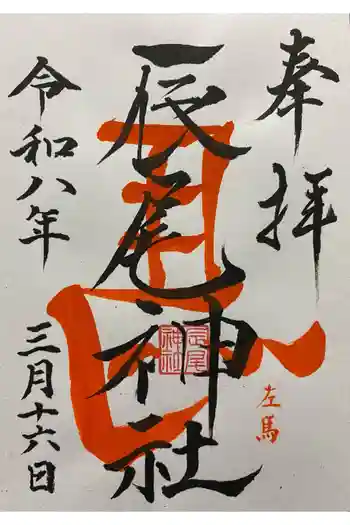 奉拝
辰尾神社
辰尾
神社
左馬
令和八年
三月十六日